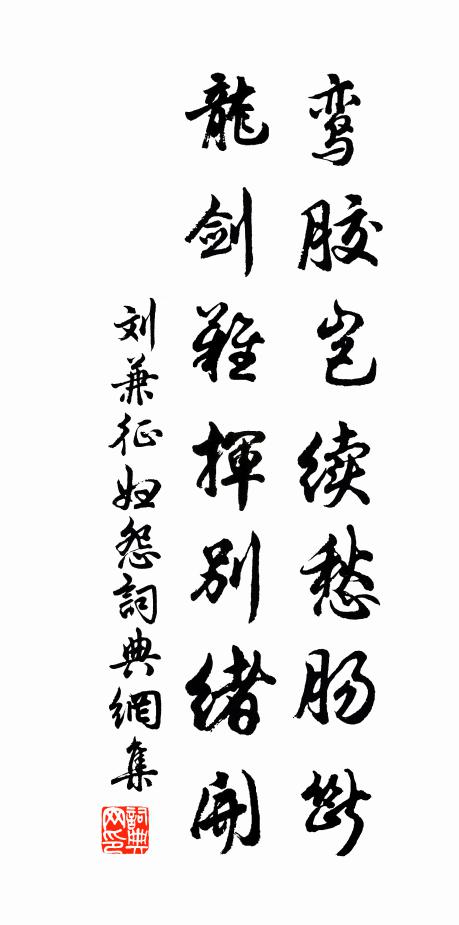 鸾胶岂续愁肠断
龍剑难揮别绪開
刘兼征妇怨詞典網集
詞典网印